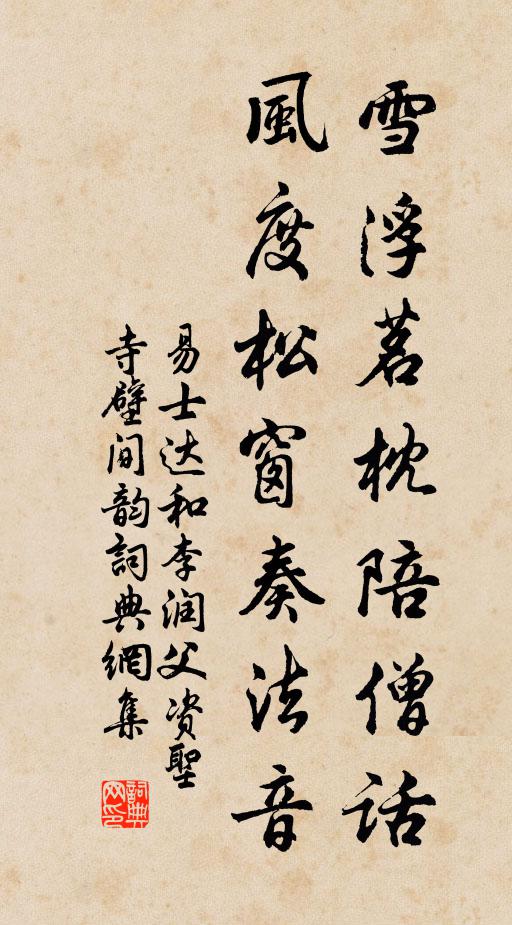 雪浮茗枕陪僧话
風度松窗奏法音
易士达和李润父资聖
寺壁间韵詞典網集
詞典网印